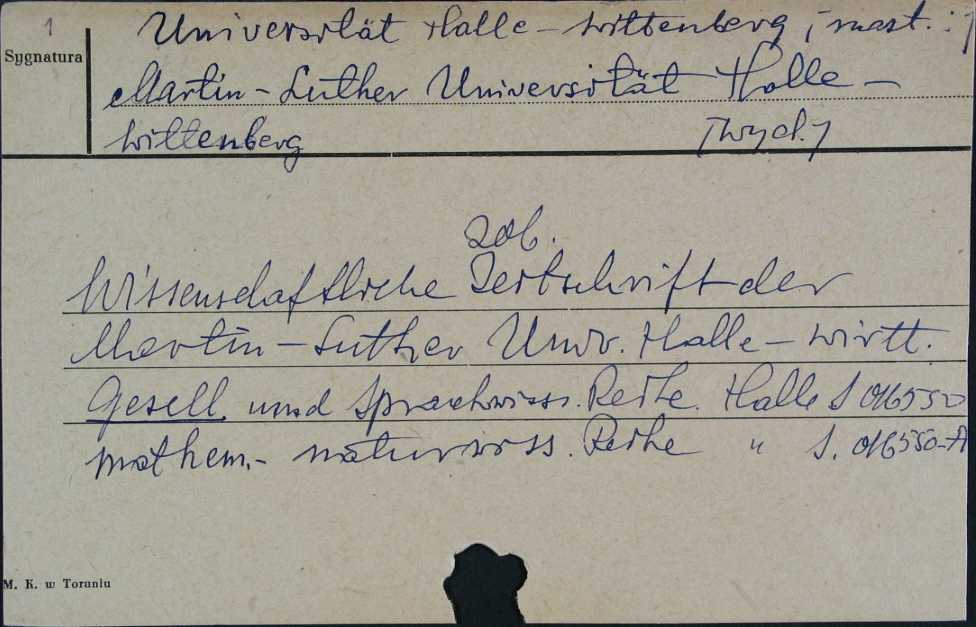 1
Universität Halle-Wittenberg, nast.:
Sygnatura
Martin-Luther Universität Halle-
Wittenberg [wyd.]
zob.
Wissenschaftliche Zeitschrift der
Martin-Luther Univ. Halle-Witt.
Gesell. und Sprachwiss. Reihe. Halle S 016550
mathem.- naturwiss. Reihe " S. 016550-A
M. K. w Toruniu